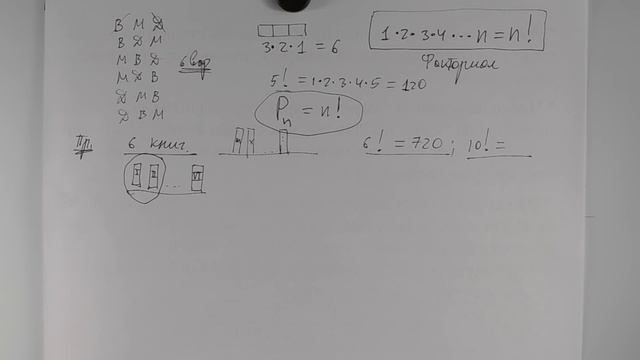 В М Д
В Д М
М В Д
М Д В
Д М В
Д В М
6 вар
3·2·1 = 6
1·2·3·4 ··· n = n!
Факториал
5! = 1·2·3·4·5 = 120
Pn = n!
Пр. 6 книг.
I II ... VI
6! = 720; 10! =